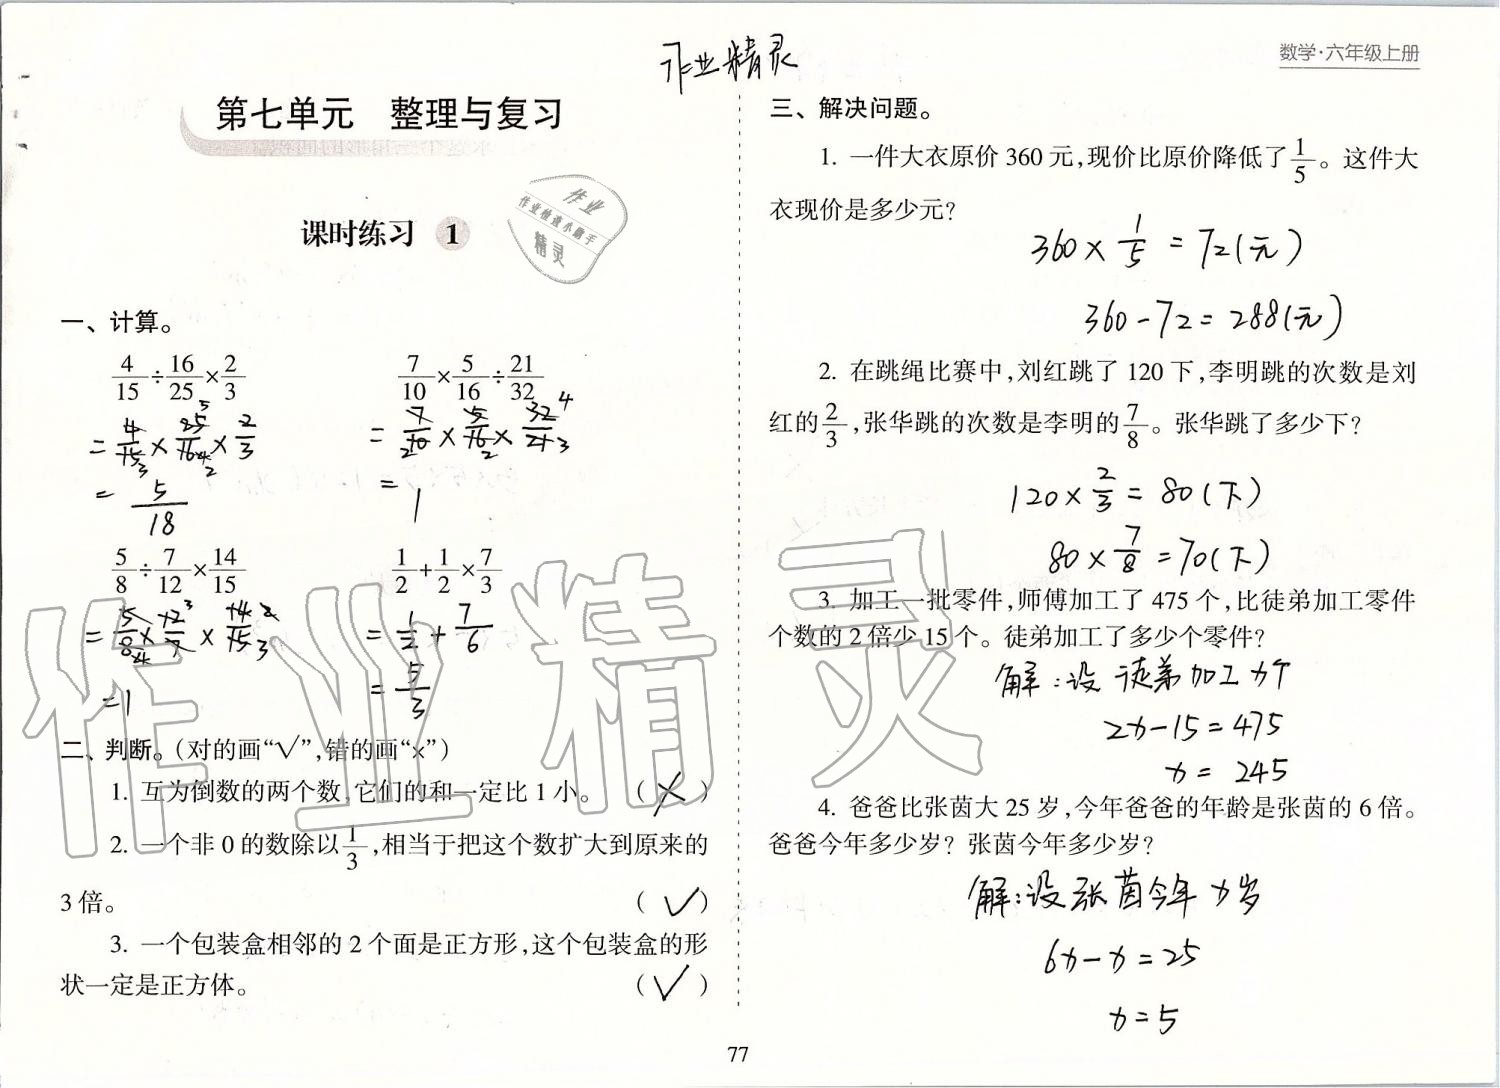 作业精灵
数学·六年级上册
第七单元 整理与复习
作业
作业检查小助手
精灵
课时练习 1
一、计算。
4/15÷16/25×2/3 7/10×5/16÷21/32
=4/15×25/16×2/3 =7/10×5/16×32/21
=5/18 =1
5/8÷7/12×14/15 1/2+1/2×7/3
=5/8×12/7×14/15 =1/2+7/6
=1 =5/3
二、判断。(对的画“√”,错的画“×”)
1. 互为倒数的两个数,它们的和一定比1小。 (×)
2. 一个非0的数除以1/3,相当于把这个数扩大到原来的
3倍。 (√)
3. 一个包装盒相邻的2个面是正方形,这个包装盒的形
状一定是正方体。 (√)
三、解决问题。
1. 一件大衣原价360元,现价比原价降低了1/5。这件大
衣现价是多少元?
360×1/5=72(元)
360-72=288(元)
2. 在跳绳比赛中,刘红跳了120下,李明跳的次数是刘
红的2/3,张华跳的次数是李明的7/8。张华跳了多少下?
120×2/3=80(下)
80×7/8=70(下)
3. 加工一批零件,师傅加工了475个,比徒弟加工零件
个数的2倍少15个。徒弟加工了多少个零件?
解:设徒弟加工x个
2x-15=475
x=245
4. 爸爸比张茵大25岁,今年爸爸的年龄是张茵的6倍。
爸爸今年多少岁?张茵今年多少岁?
解:设张茵今年x岁
6x-x=25
x=5
77
作业精灵